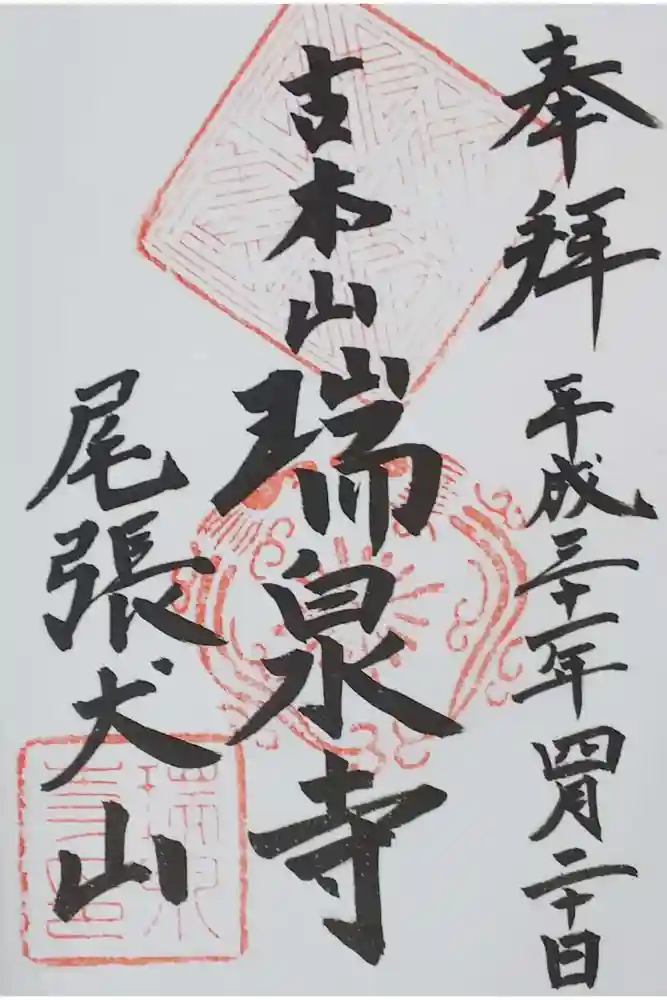 奉拝
平成三十一年四月二十日
古本山
瑞泉寺
尾張犬山
瑞泉寺印